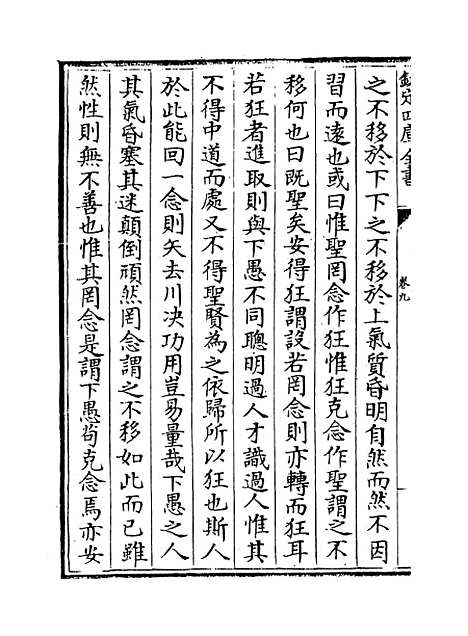 欽定四庫全書
卷九
之不移於下下之不移於上氣質昏明自然而然不因
習而遠也或曰惟聖罔念作狂惟狂克念作聖謂之不
移何也曰既聖矣安得狂謂設若罔念則亦轉而狂耳
若狂者進取則與下愚不同聰明過人才識過人惟其
不得中道而處又不得聖賢為之依歸所以狂也斯人
於此能回一念則矢去川决功用豈易量哉下愚之人
其氣昏塞其迷顛倒頑然罔念謂之不移如此而已雖
然性則無不善也惟其罔念是謂下愚苟克念焉亦安